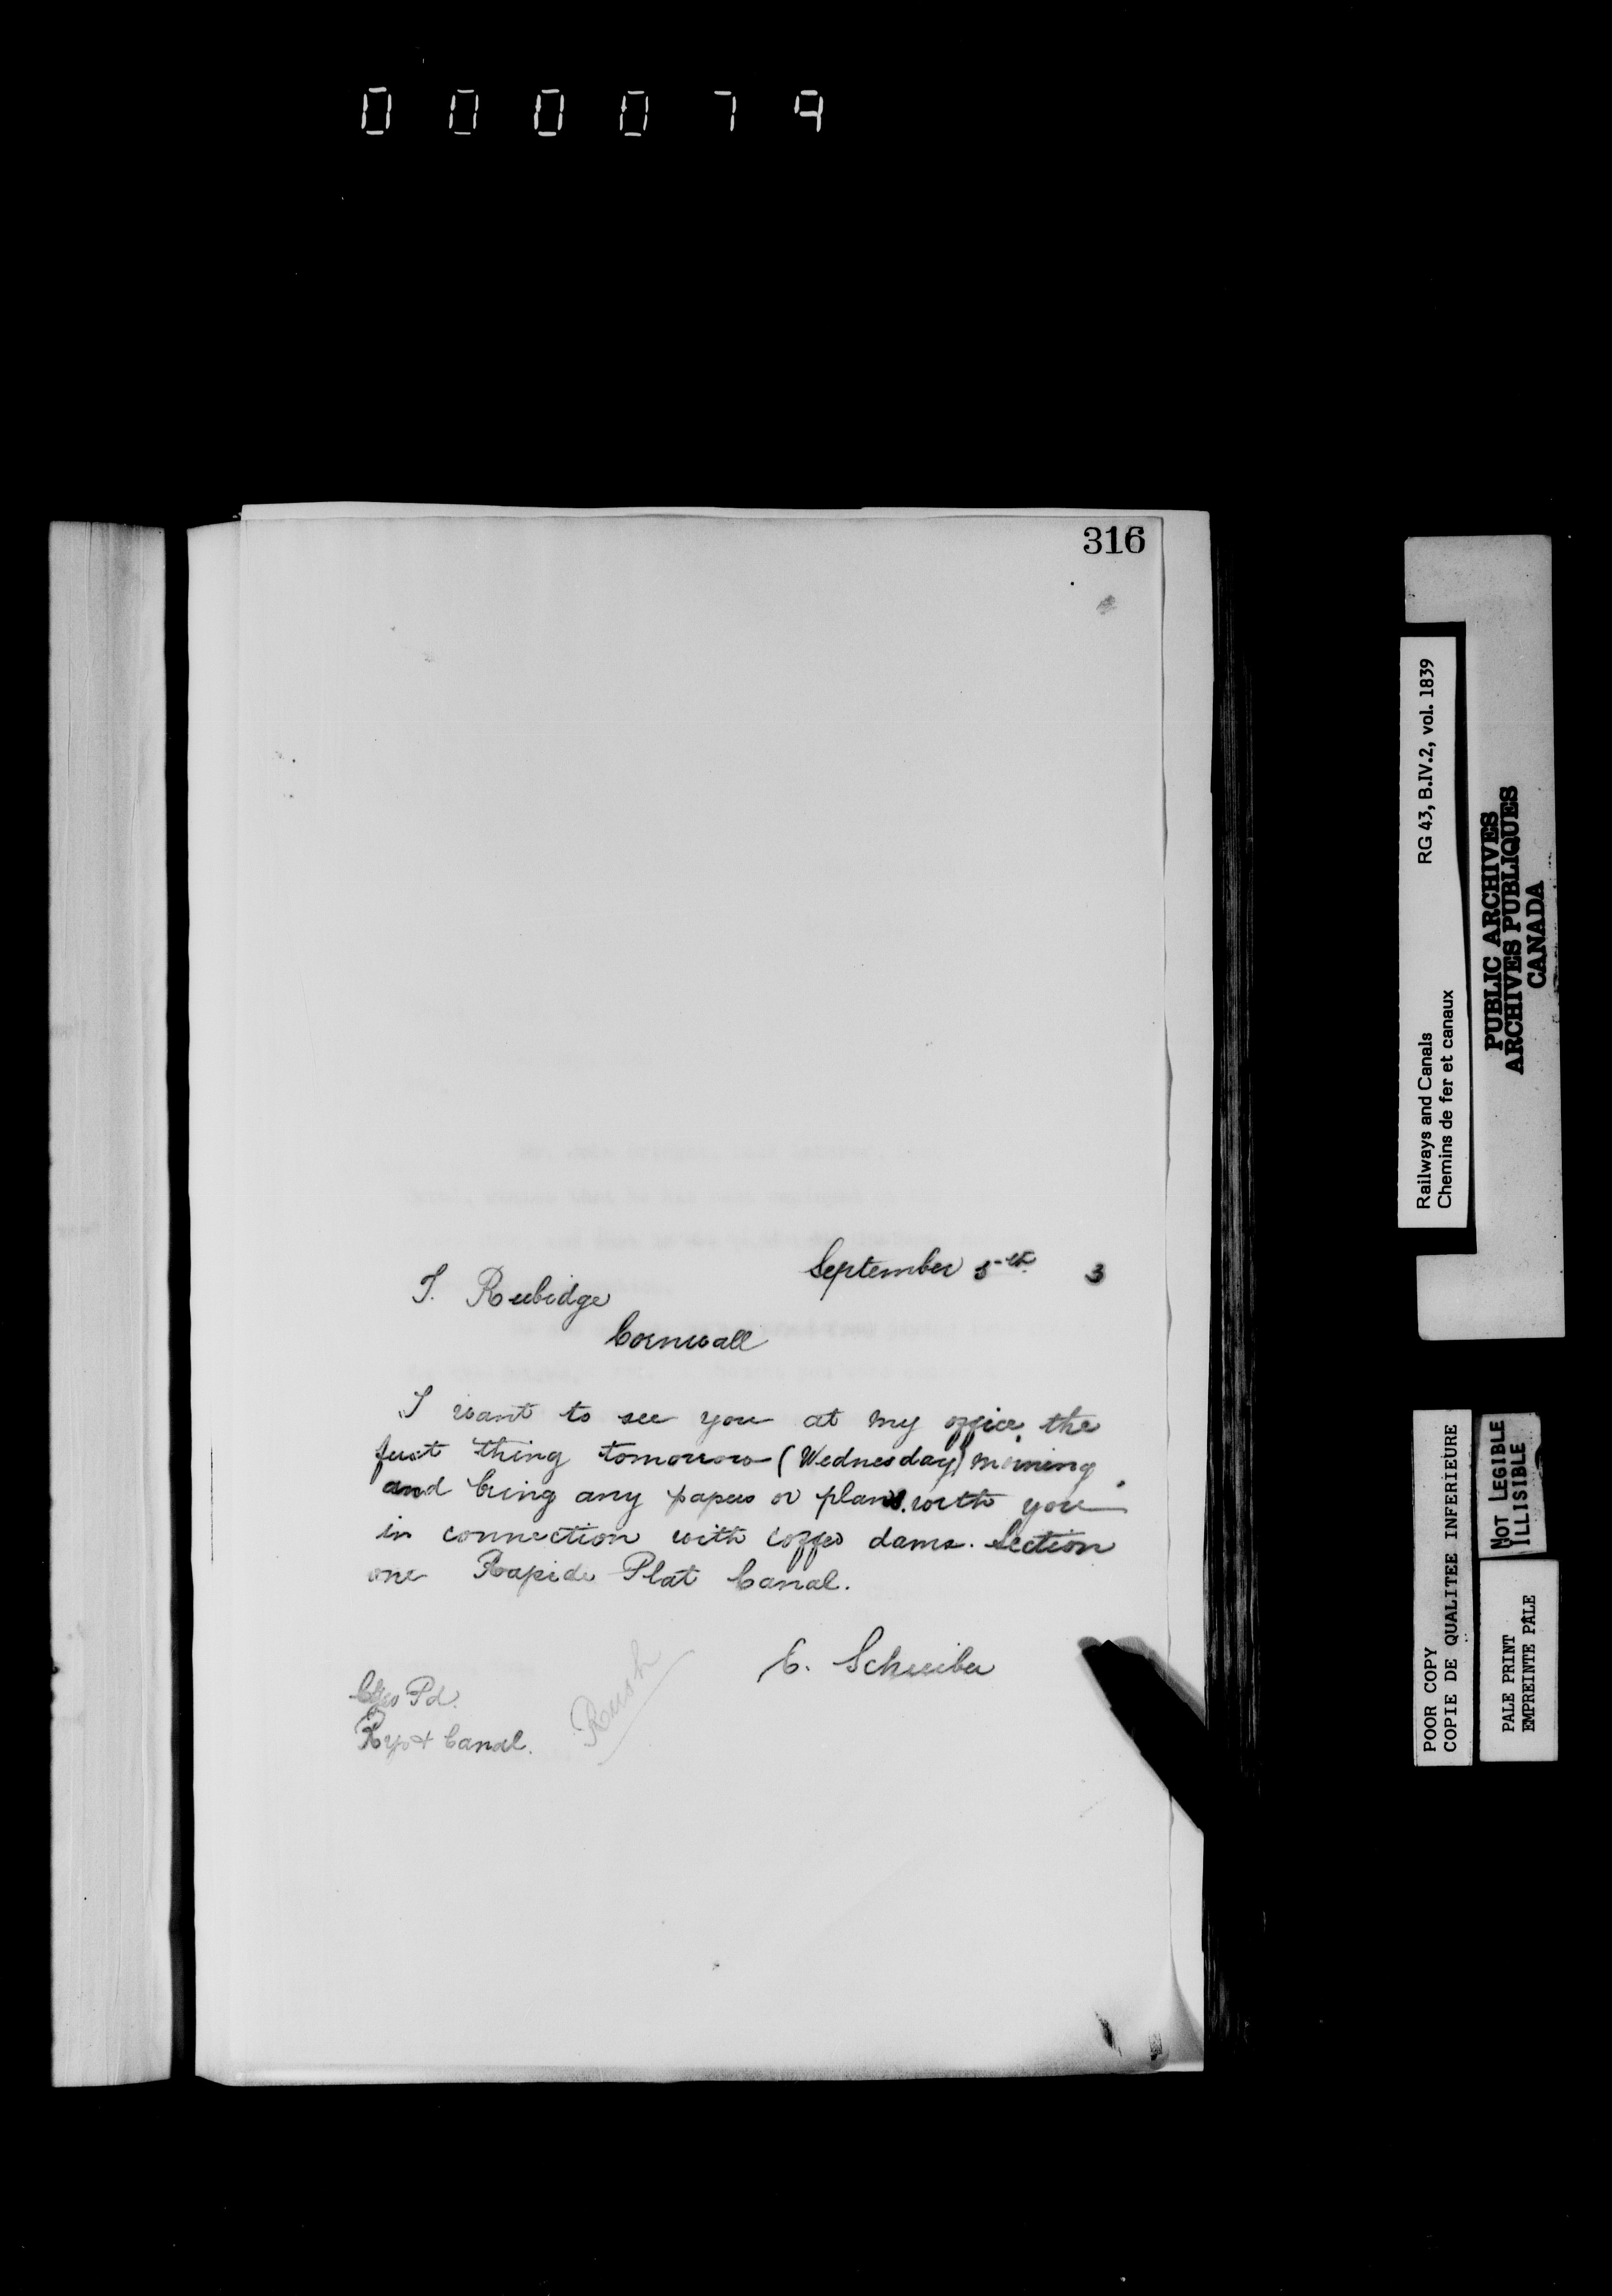 000079
316
September 5th 3
T. Rubidge
Cornwall
I want to see you at my office the
first thing tomorrow (Wednesday) morning
and bring any papers or plans with you
in connection with coffer dams. Section
one Rapide Plat Canal.
C. Schreiber
Chgs Pd.
Rys & Canal.
Rush
Railways and Canals RG 43, B.IV.2, vol. 1839
Chemins de fer et canaux
PUBLIC ARCHIVES
ARCHIVES PUBLIQUES
CANADA
POOR COPY
COPIE DE QUALITEE INFERIEURE
NOT LEGIBLE
ILLISIBLE
PALE PRINT
EMPREINTE PÂLE